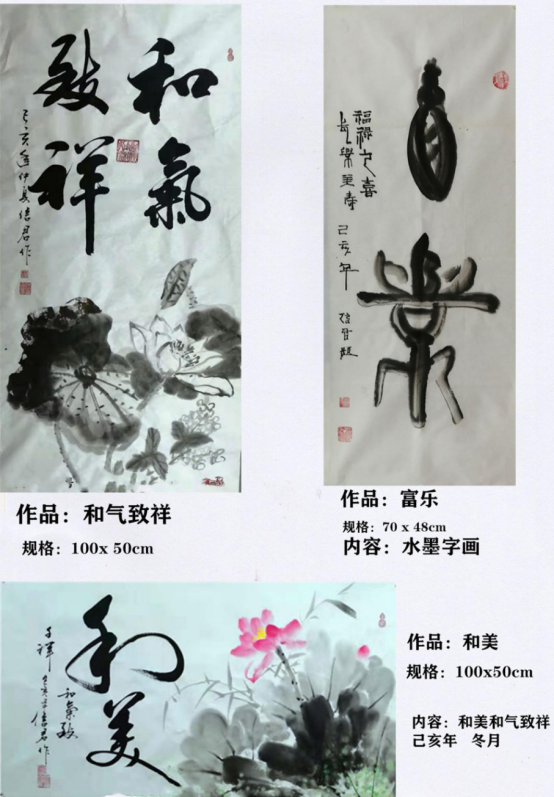 和氣
致祥
己亥蓮仲夏信君作
作品：和气致祥
规格：100x 50cm
福禄之喜
長樂至幸
己亥年
樂
作品：富乐
规格：70 x 48cm
内容：水墨字画
和美
和氣致
子祥
信君作
作品：和美
规格：100x50cm
内容：和美和气致祥
己亥年 冬月